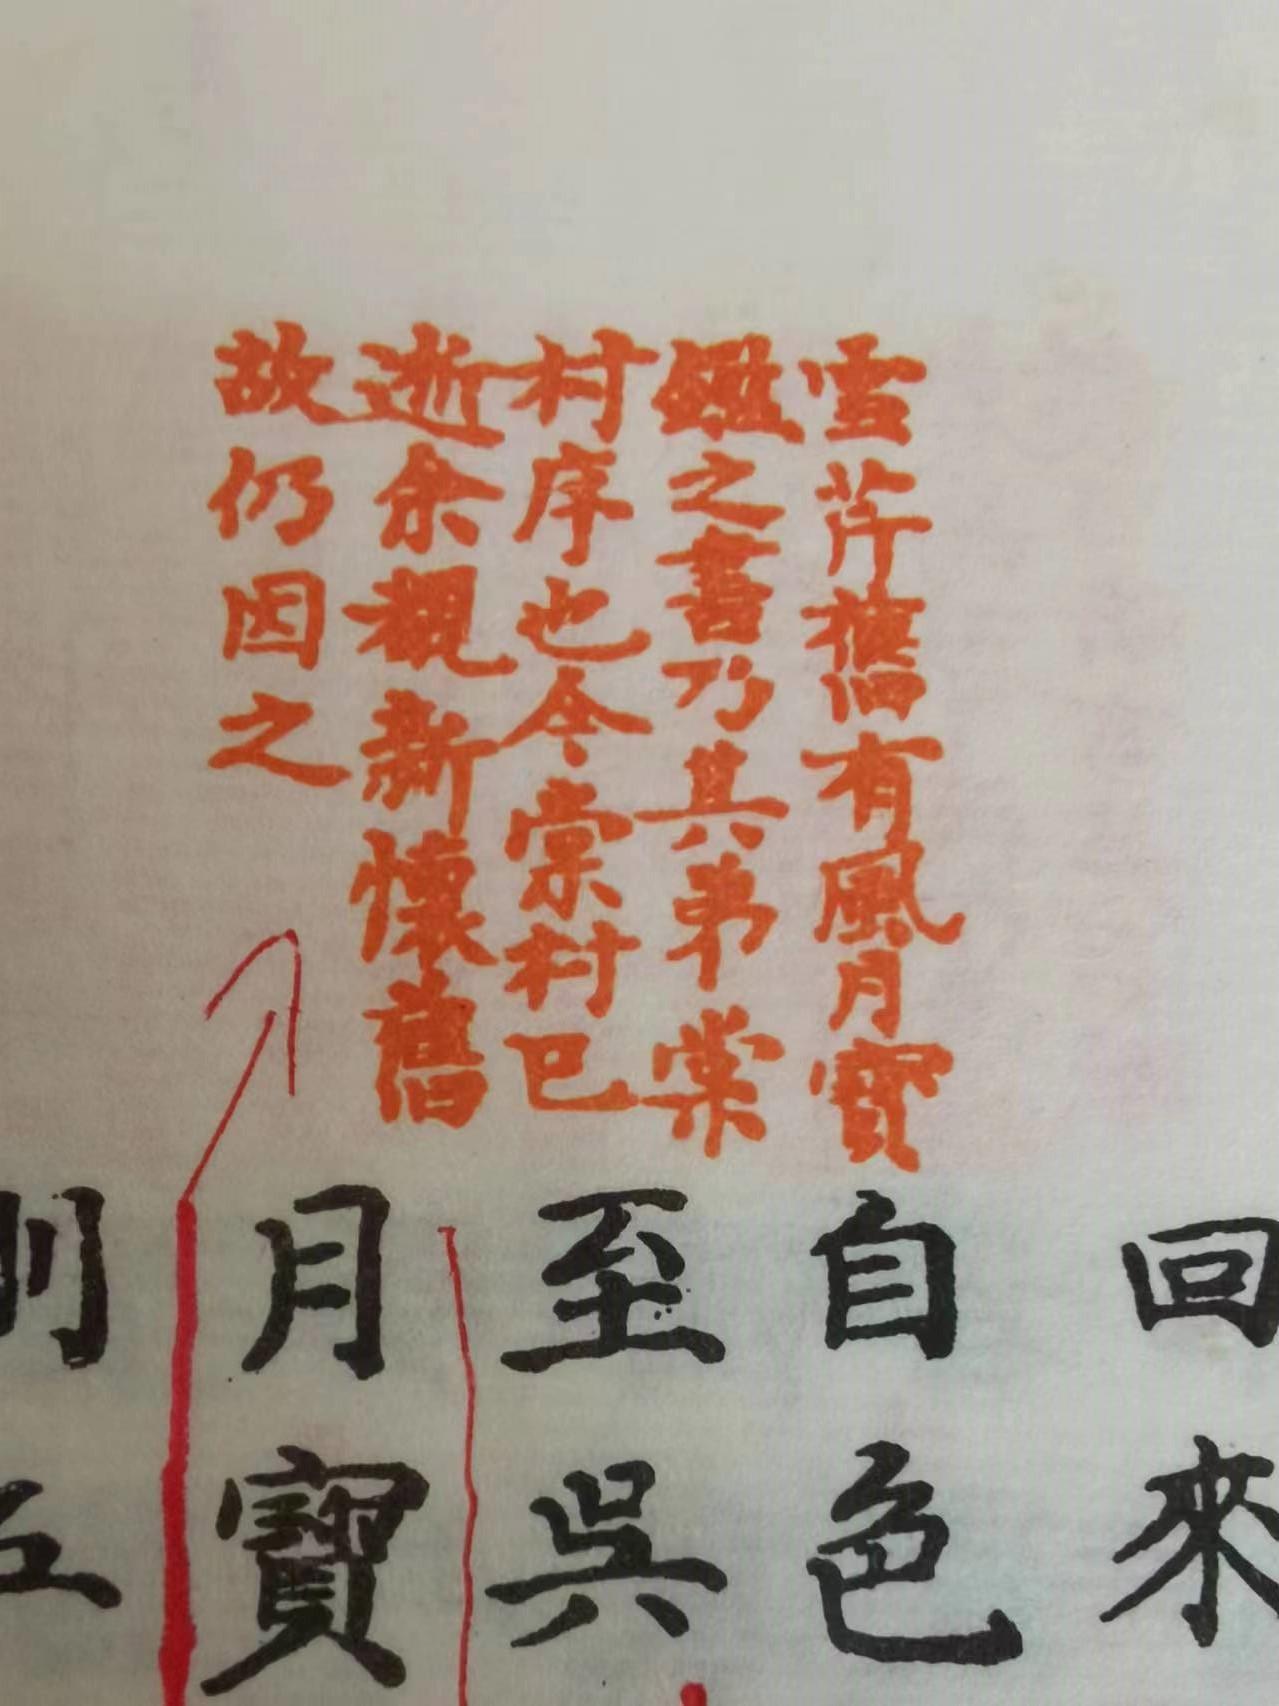 雪芹舊有風月寶
鑑之書乃其弟棠
村序也今棠村已
逝余覩新懷舊
故仍因之
回來
自色
至吳
月寶